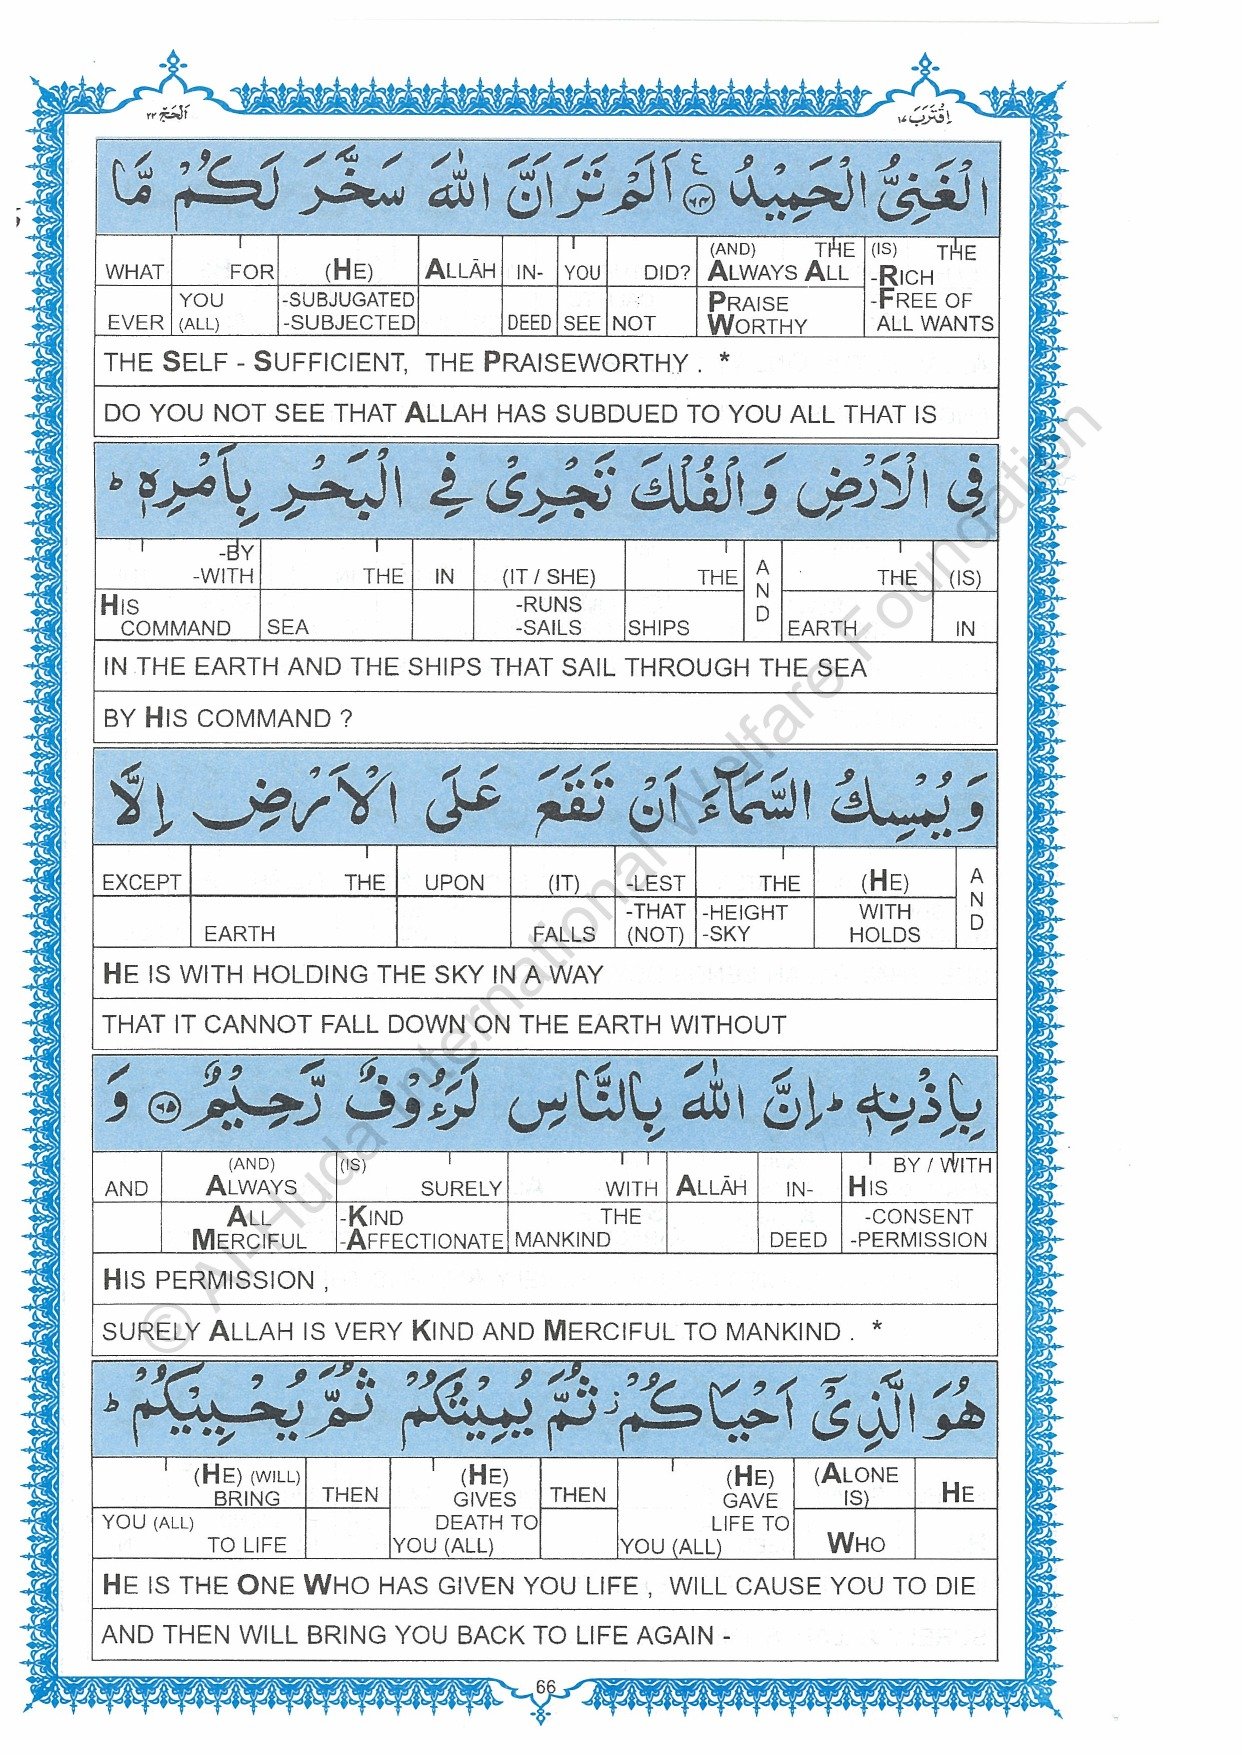 اَلْحَجّ ٢٢
اِقْتَرَبَ ١٧
الْغَنِىُّ الْحَمِيْدُ ﴿٦٤﴾ ع اَلَمْ تَرَ اَنَّ اللّٰهَ سَخَّرَ لَكُمْ مَّا
WHAT FOR (HE) ALLĀH IN- YOU DID? (AND) THE ALWAYS ALL (IS) THE -RICH
EVER YOU (ALL) -SUBJUGATED -SUBJECTED DEED SEE NOT PRAISE WORTHY -FREE OF ALL WANTS
THE SELF - SUFFICIENT, THE PRAISEWORTHY . *
DO YOU NOT SEE THAT ALLAH HAS SUBDUED TO YOU ALL THAT IS
فِي الْاَرْضِ وَالْفُلْكَ تَجْرِىْ فِي الْبَحْرِ بِاَمْرِهٖ ؕ
-BY -WITH THE IN (IT / SHE) THE AND THE (IS)
HIS COMMAND SEA -RUNS -SAILS SHIPS EARTH IN
IN THE EARTH AND THE SHIPS THAT SAIL THROUGH THE SEA
BY HIS COMMAND ?
وَيُمْسِكُ السَّمَآءَ اَنْ تَقَعَ عَلَى الْاَرْضِ اِلَّا
EXCEPT THE UPON (IT) -LEST THE (HE) AND
EARTH FALLS -THAT (NOT) -HEIGHT -SKY WITH HOLDS
HE IS WITH HOLDING THE SKY IN A WAY
THAT IT CANNOT FALL DOWN ON THE EARTH WITHOUT
بِاِذْنِهٖ ؕ اِنَّ اللّٰهَ بِالنَّاسِ لَرَءُوْفٌ رَّحِيْمٌ ﴿٦٥﴾ وَ
AND (AND) ALWAYS (IS) SURELY WITH ALLĀH IN- BY / WITH HIS
ALL MERCIFUL -KIND -AFFECTIONATE THE MANKIND DEED -CONSENT -PERMISSION
HIS PERMISSION ,
SURELY ALLAH IS VERY KIND AND MERCIFUL TO MANKIND . *
هُوَ الَّذِىْٓ اَحْيَاكُمْ ز ثُمَّ يُمِيْتُكُمْ ثُمَّ يُحْيِيْكُمْ ؕ
(HE) (WILL) BRING THEN (HE) GIVES THEN (HE) GAVE (ALONE IS) HE
YOU (ALL) TO LIFE DEATH TO YOU (ALL) LIFE TO YOU (ALL) WHO
HE IS THE ONE WHO HAS GIVEN YOU LIFE , WILL CAUSE YOU TO DIE
AND THEN WILL BRING YOU BACK TO LIFE AGAIN -
66
© Al-Huda International Welfare Foundation